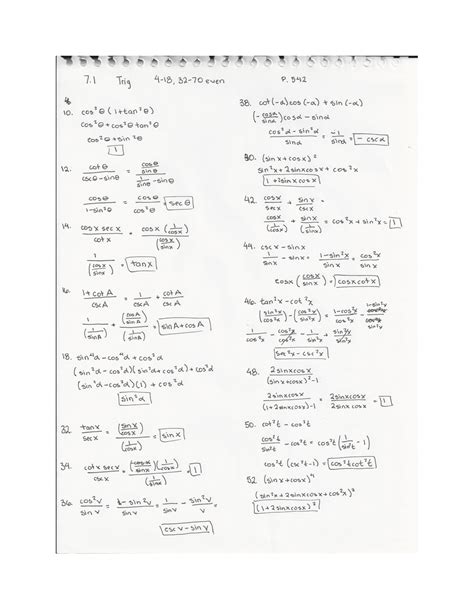 7.1 Trig 4-18, 32-70 even P. 542
8
10. cos²θ (1+tan²θ)
cos²θ + cos²θ tan²θ
cos²θ + sin²θ
1
12. cotθ / (cscθ - sinθ) = (cosθ/sinθ) / (1/sinθ - sinθ)
cosθ / (1-sin²θ) = cosθ / cos²θ = secθ
14. cosx secx / cotx = cosx (1/cosx) / (cosx/sinx)
1 / (cosx/sinx) = tanx
16. (1+cotA) / cscA = 1/cscA + cotA/cscA
1/(1/sinA) + (cosA/sinA)/(1/sinA) = sinA + cosA
18. sin⁴α - cos⁴α + cos²α
(sin²α - cos²α)(sin²α + cos²α) + cos²α
(sin²α - cos²α)(1) + cos²α
sin²α
32. tanx / secx = (sinx/cosx) / (1/cosx) = sinx
34. cotx secx / cscx = (cosx/sinx)(1/cosx) / (1/sinx) = 1
36. cos²v / sinv = (1-sin²v) / sinv = 1/sinv - sin²v/sinv
cscv - sinv
38. cot(-α)cos(-α) + sin(-α)
(-cosα/sinα) cosα - sinα
= -1/sinα = -cscα
(sinx+cosx)²
sin²x + 2sinxcosx + cos²x
1+2sinxcosx
42. cosx/secx + sinx/cscx =
cosx/(1/cosx) + sinx/(1/sinx) = cos²x + sin²x = 1
44. cscx - sinx
1/sinx - sinx = (1-sin²x)/sinx = cos²x/sinx
cosx (cosx/sinx) = cosxcotx
46. tan²x - cot²x
sec²x - csc²x
48. 2sinxcosx / ((sinx+cosx)²-1)
2sinxcosx / ((1+2sinxcosx)-1) = 2sinxcosx / 2sinxcosx = 1
50. cot²t - cos²t
cos²t/sin²t - cos²t = cos²t (1/sin²t - 1)
cos²t (csc²t-1) = cos²t cot²t
52 (sinx+cosx)⁴
(sin²x+2sinxcosx+cos²x)²
(1+2sinxcosx)²